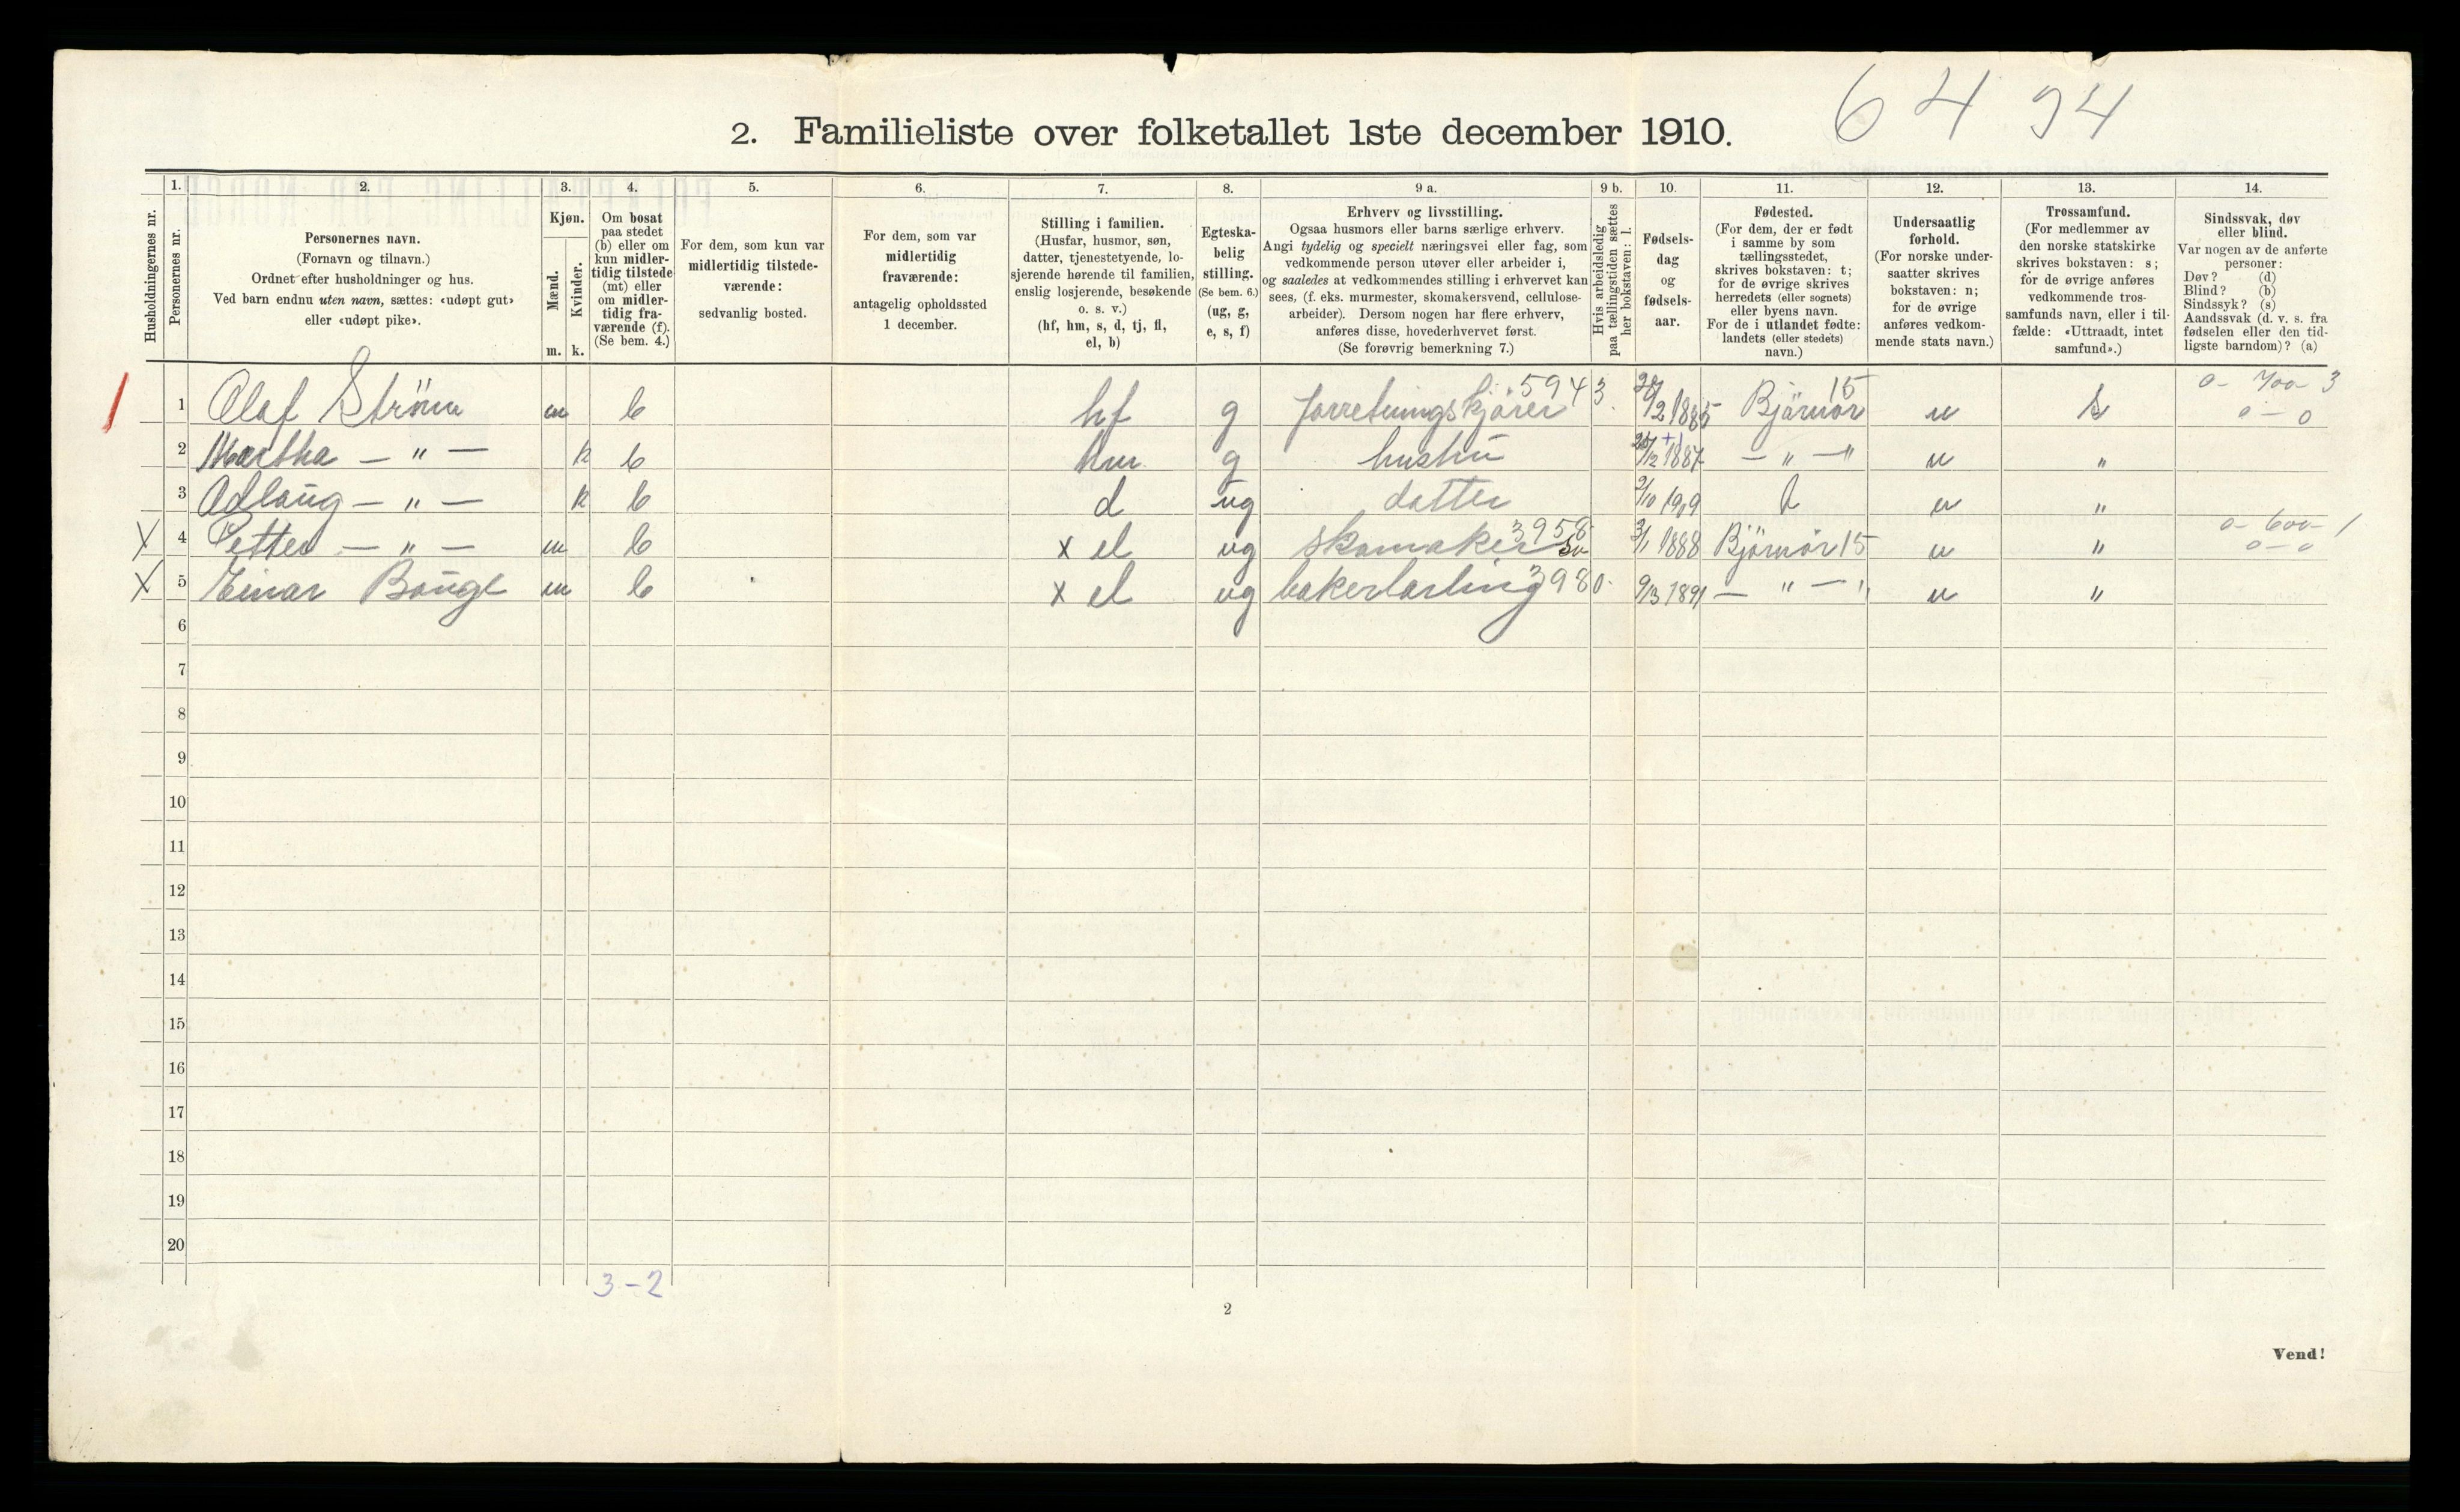 6 4 94
2. Familieliste over folketallet 1ste december 1910.
Husholdningernes nr.
1.
Personernes nr.
2.
Personernes navn.
(Fornavn og tilnavn.)
Ordnet efter husholdninger og hus.
Ved barn endnu uten navn, sættes: «udøpt gut»
eller «udøpt pike».
3.
Kjøn.
Mænd.
Kvinder.
m. k.
4.
Om bosat
paa stedet
(b) eller om
kun midler-
tidig tilstede
(mt) eller
om midler-
tidig fra-
værende (f).
(Se bem. 4.)
5.
For dem, som kun var
midlertidig tilstede-
værende:
sedvanlig bosted.
6.
For dem, som var
midlertidig
fraværende:
antagelig opholdssted
1 december.
7.
Stilling i familien.
(Husfar, husmor, søn,
datter, tjenestetyende, lo-
sjerende hørende til familien,
enslig losjerende, besøkende
o. s. v.)
(hf, hm, s, d, tj, fl,
el, b)
8.
Egteska-
belig
stilling.
(Se bem. 6.)
(ug, g,
e, s, f)
9 a.
Erhverv og livsstilling.
Ogsaa husmors eller barns særlige erhverv.
Angi tydelig og specielt næringsvei eller fag, som
vedkommende person utøver eller arbeider i,
og saaledes at vedkommendes stilling i erhvervet kan
sees, (f. eks. murmester, skomakersvend, cellulose-
arbeider). Dersom nogen har flere erhverv,
anføres disse, hovederhvervet først.
(Se forøvrig bemerkning 7.)
9 b.
Hvis arbeidsledig
paa tællingstiden sættes
her bokstaven: l.
10.
Fødsels-
dag
og
fødsels-
aar.
11.
Fødested.
(For dem, der er født
i samme by som
tællingsstedet,
skrives bokstaven: t;
for de øvrige skrives
herredets (eller sognets)
eller byens navn.
For de i utlandet fødte:
landets (eller stedets)
navn.)
12.
Undersaatlig
forhold.
(For norske under-
saatter skrives
bokstaven: n;
for de øvrige
anføres vedkom-
mende stats navn.)
13.
Trossamfund.
(For medlemmer av
den norske statskirke
skrives bokstaven: s;
for de øvrige anføres
vedkommende tros-
samfunds navn, eller i til-
fælde: «Uttraadt, intet
samfund».)
14.
Sindssvak, døv
eller blind.
Var nogen av de anførte
personer:
Døv? (d)
Blind? (b)
Sindssyk? (s)
Aandssvak (d. v. s. fra
fødselen eller den tid-
ligste barndom)? (a)
1 Olaf Strøm m b hf g forretningskjører 5943 /2 1885 Bjørnør 15 n s 0- 700- 3 0-0
2 Martha — " — k b hm g hustru /12 1887 — " — " n "
3 Adlaug — " — k b d ug datter 2/10 1909 t n "
X 4 Petter — " — m b x el ug skomaker sv 3958 3/1 1888 Bjørnør 15 n " 0- 600- 1 0-0
X 5 Einar Bauge m b x el ug bakerlærling 3980 9/3 1891 — " — " n "
6
7
8
9
10
11
12
13
14
15
16
17
18
19
20
3-2
2
Vend!